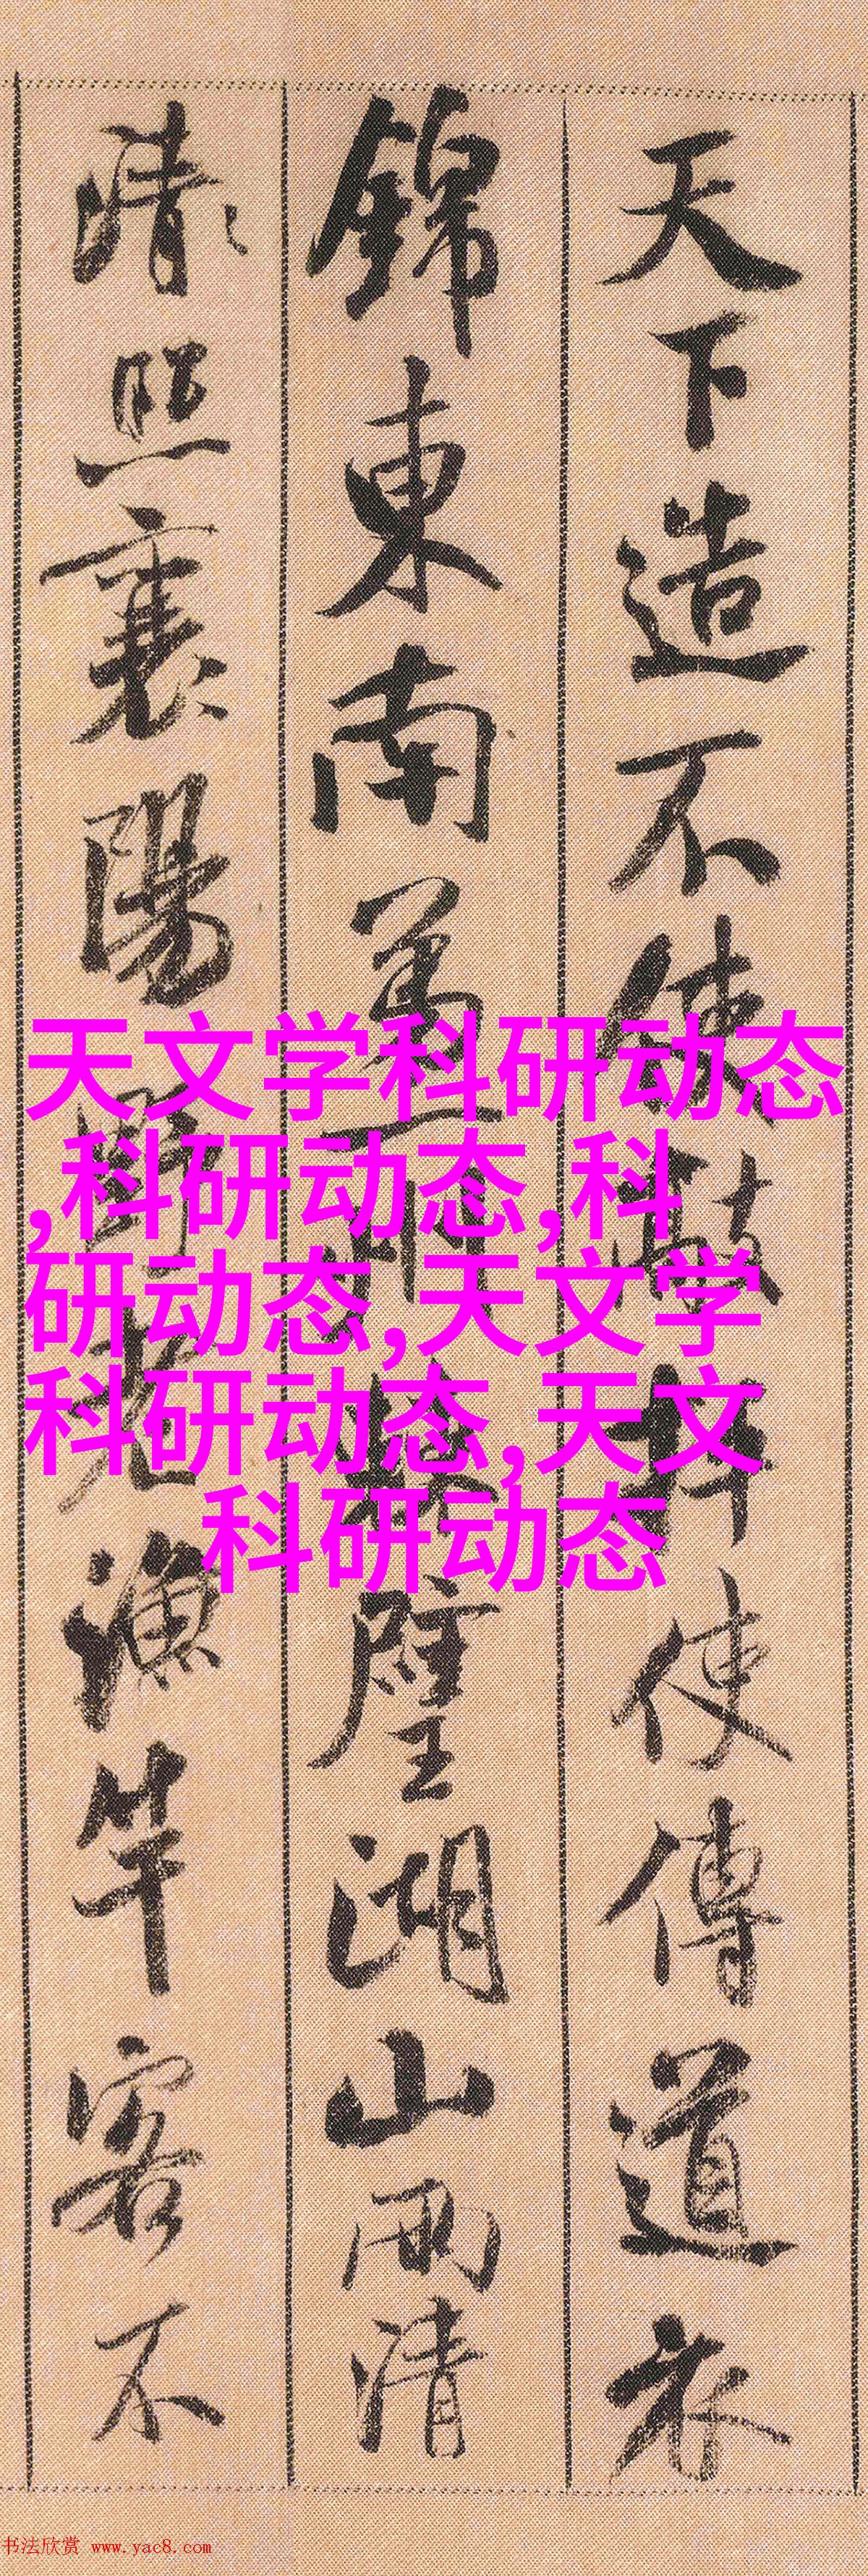 天下造不使敲抨使傳道衣
錦東南萬
璧湖山兩清
清〻照襄陽野老漁竿客不
天文学科研动态
,科研动态,科
研动态,天文学
科研动态,天文
科研动态
书法欣赏 www.yac8.com